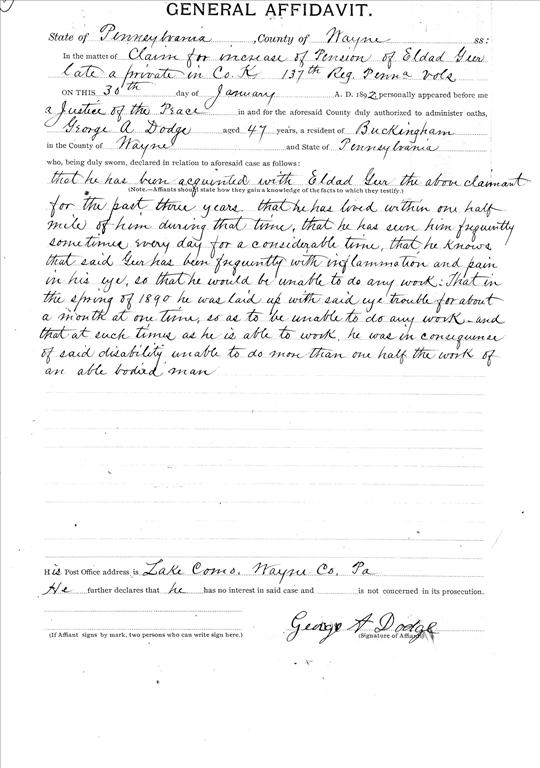 GENERAL AFFIDAVIT.
State of Pennsylvania, County of Wayne ss:
In the matter of Claim for increase of Pension of Eldad Geer
late a private in Co. K 137th Reg. Penna vols
ON THIS 30th day of January A. D. 1892 personally appeared before me
a Justice of the Peace in and for the aforesaid County duly authorized to administer oaths,
George A Dodge aged 47 years, a resident of Buckingham
in the County of Wayne and State of Pennsylvania
who, being duly sworn, declared in relation to aforesaid case as follows:
that he has been acquinted with Eldad Geer the above claimant
(Note.—Affiants should state how they gain a knowledge of the facts to which they testify.)
for the past three years. that he has lived within one half
mile of him during that time, that he has seen him frequntly
sometimes every day for a considerable time, that he knows
that said Geer has been frequntly with inflammation and pain
in his eye, so that he would be unable to do any work: That in
the spring of 1890 he was laid up with said eye trouble for about
a month at one time, so as to be unable to do any work - and
that at such times as he is able to work, he was in consequense
of said disability unable to do more than one half the work of
an able bodied man
His Post Office address is Lake Como. Wayne Co. Pa
He further declares that he has no interest in said case and is not concerned in its prosecution.
George A Dodge
(If Affiant signs by mark, two persons who can write sign here.) (Signature of Affiant)